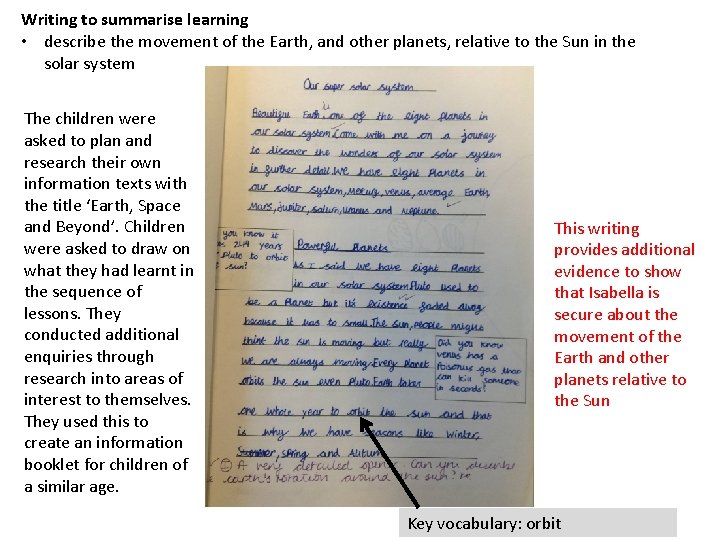 Writing to summarise learning
• describe the movement of the Earth, and other planets, relative to the Sun in the
solar system
The children were
asked to plan and
research their own
information texts with
the title ‘Earth, Space
and Beyond’. Children
were asked to draw on
what they had learnt in
the sequence of
lessons. They
conducted additional
enquiries through
research into areas of
interest to themselves.
They used this to
create an information
booklet for children of
a similar age.
Our super solar system
Beautiful Earth, one of the eight planets in
our solar system. Come with me on a journey
to discover the wonders of our solar system
in further detail. We have eight Planets in
our solar system, Mercury, venus, average Earth,
Mars, Jupiter, saturn, uranus and neptune.
you know it
248 years
Pluto to orbit
sun?
Powerful Planets
As I said we have eight Planets
in our solar system Pluto used to
be a Planet but it's existence faded away
because it has to small. The sun, people might
think the sun is moving but really
we are always moving. Every Planet
orbits the sun even Pluto. Earth takes
Did you know
venus has a
Poisonus gas that
can kill someone
in seconds!
one whole year to orbit the sun and that
is why we have seasons like winter,
Summer, spring and Autumn.
A very detailed opener. Can you describe
earth's rotation around the sun?
This writing
provides additional
evidence to show
that Isabella is
secure about the
movement of the
Earth and other
planets relative to
the Sun
Key vocabulary: orbit